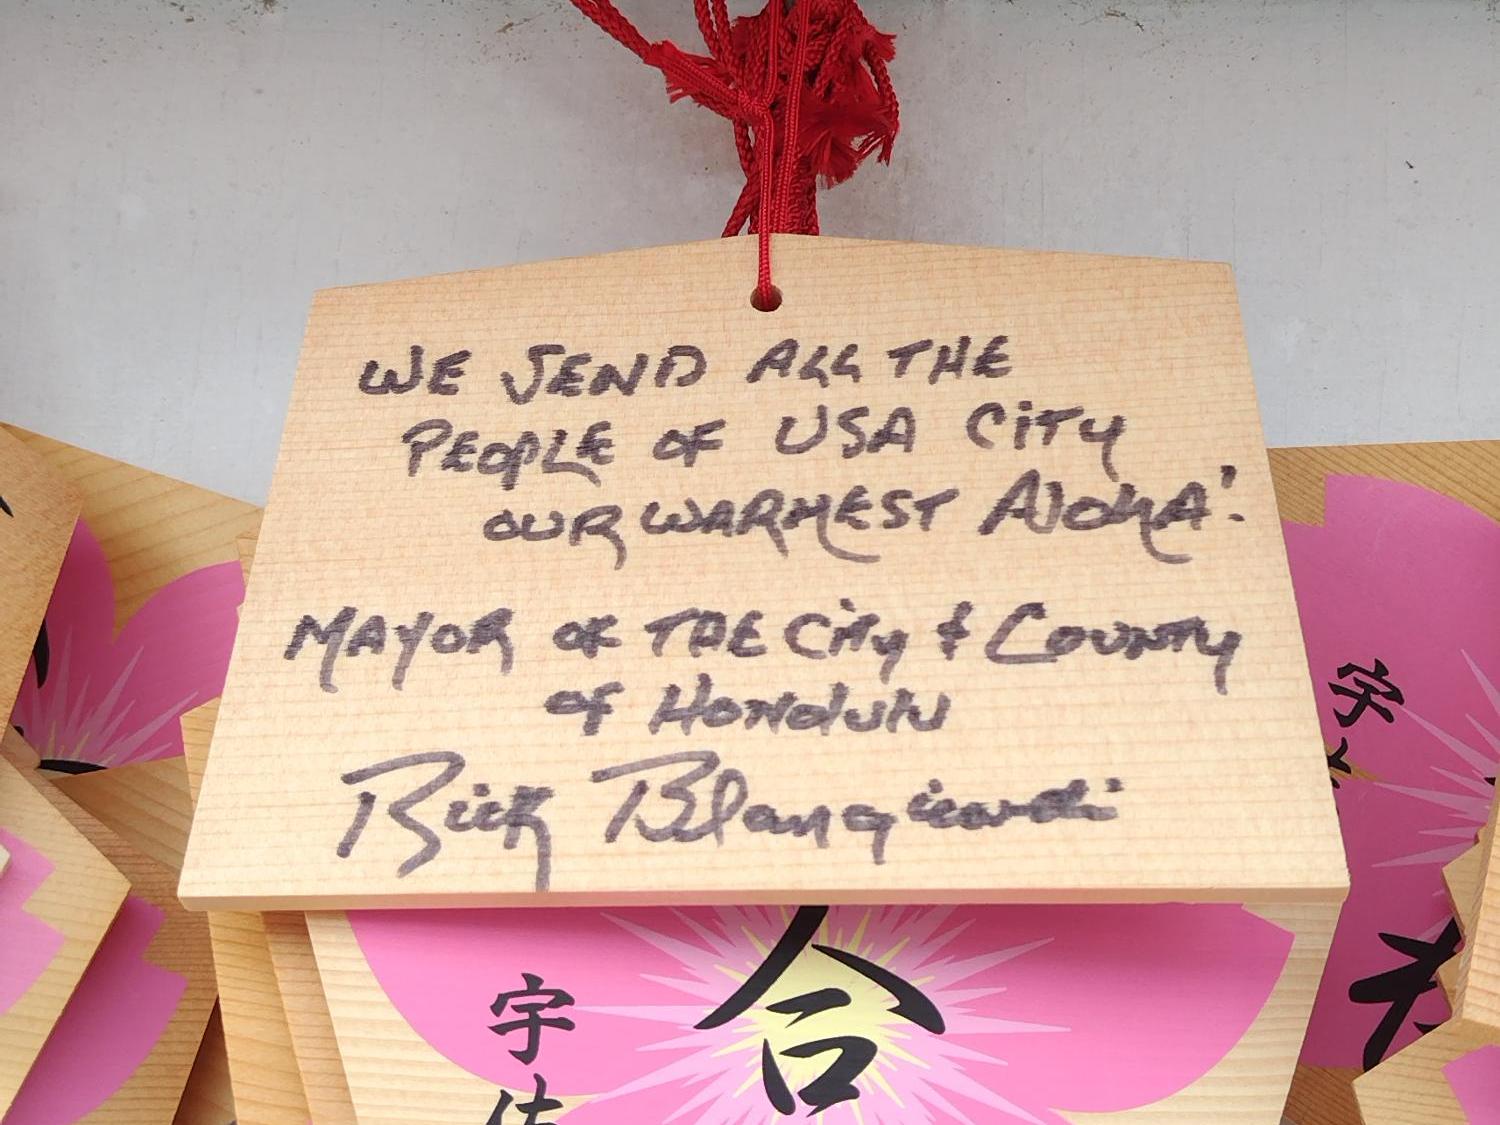 WE SEND ALL THE
PEOPLE OF USA CITY
OUR WARMEST ALOHA!
MAYOR OF THE CITY & COUNTY
OF HONOLULU
Rick Blangiardi
合
宇佐
宇